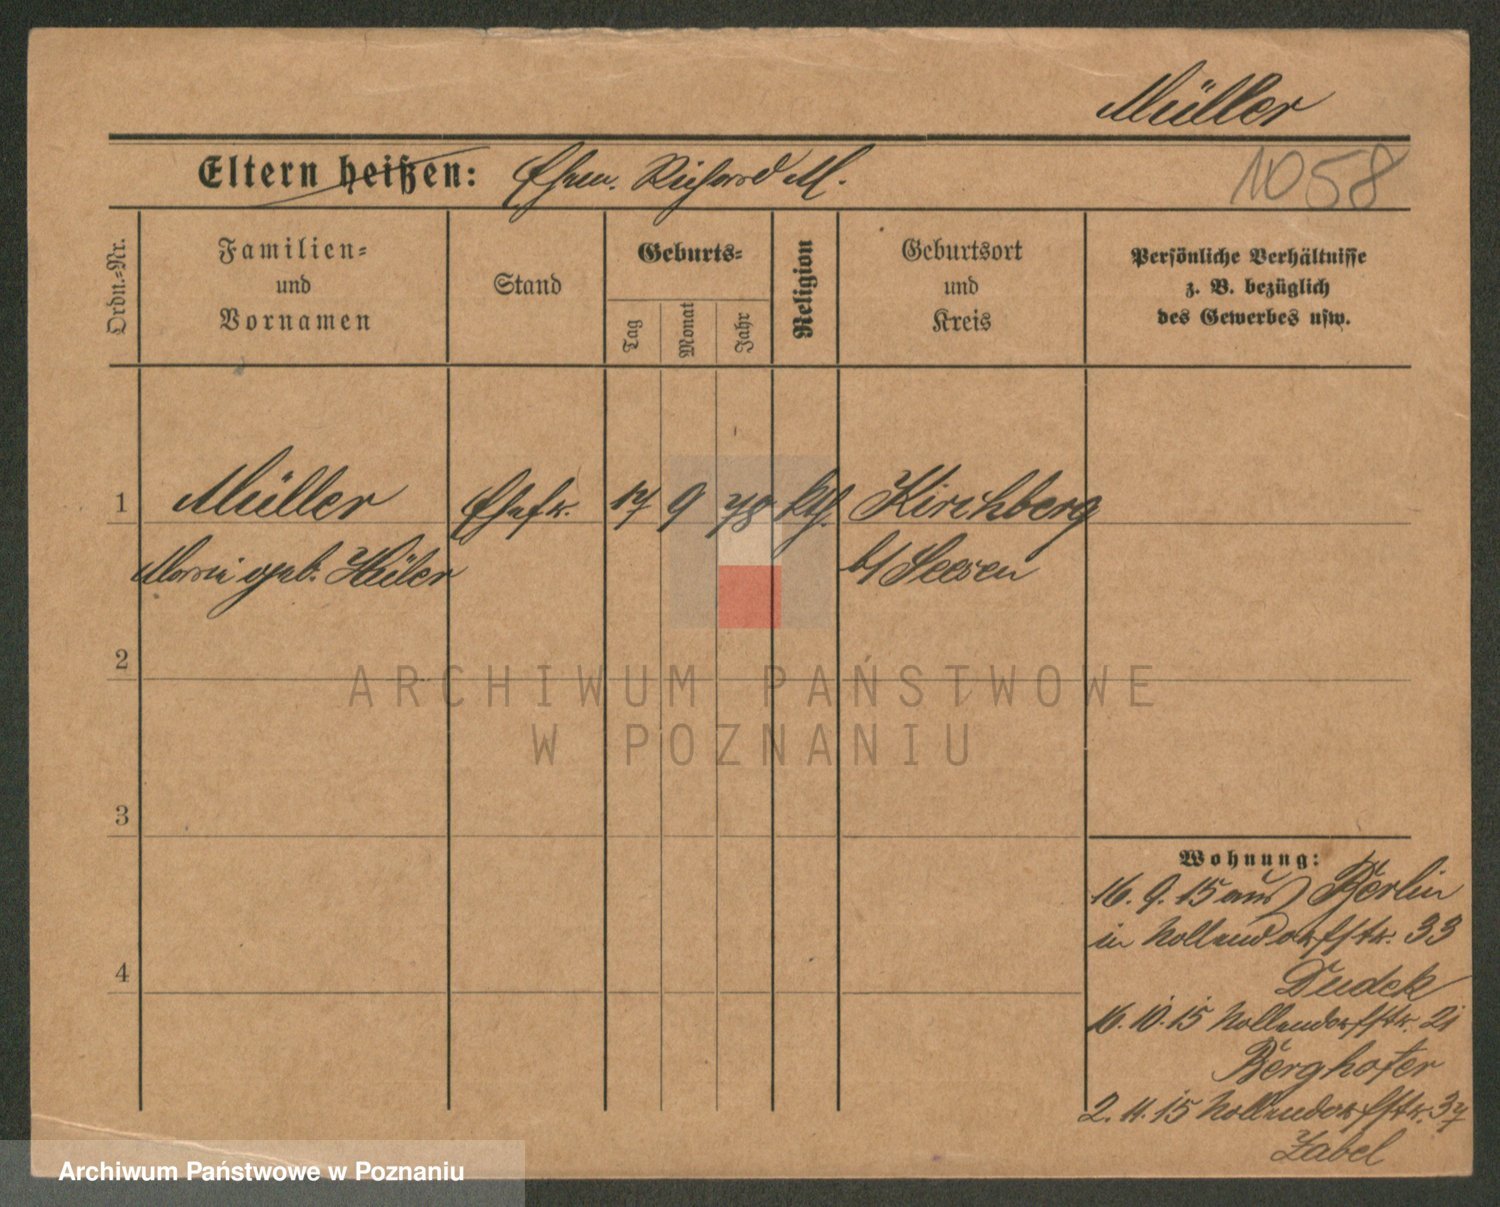 Müller
Eltern heißen: Ehem. Richard M.
1058
Ordn.-Nr.
Familien-
und
Vornamen
Stand
Geburts-
Tag
Monat
Jahr
Religion
Geburtsort
und
Kreis
Persönliche Verhältnisse
z. B. bezüglich
des Gewerbes usw.
1 Müller Ehefr. 17 9 78 kth. Kirchberg
Marie geb. Hüler b/ Seesen
2
3
4
Wohnung:
16. 9. 15 aus Berlin
in Nollendorfstr. 33
Dudek
16. 10. 15 Nollendorfstr. 21
Berghofer
2. 11. 15 Nollendorfstr. 37
Zabel
ARCHIWUM PAŃSTWOWE
W POZNANIU
Archiwum Państwowe w Poznaniu